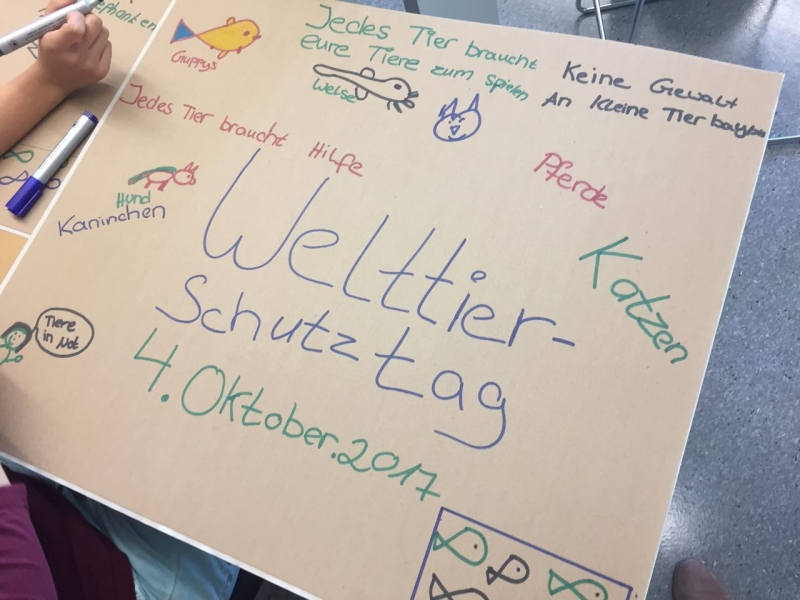 Jedes Tier braucht
eure Tiere zum spielen
Keine Gewalt
An kleine Tier
Guppys
Welse
Jedes Tier braucht Hilfe
Pferde
Hund
Kaninchen
Katzen
Welttier-
Schutztag
4. Oktober.2017
Tiere
in Not